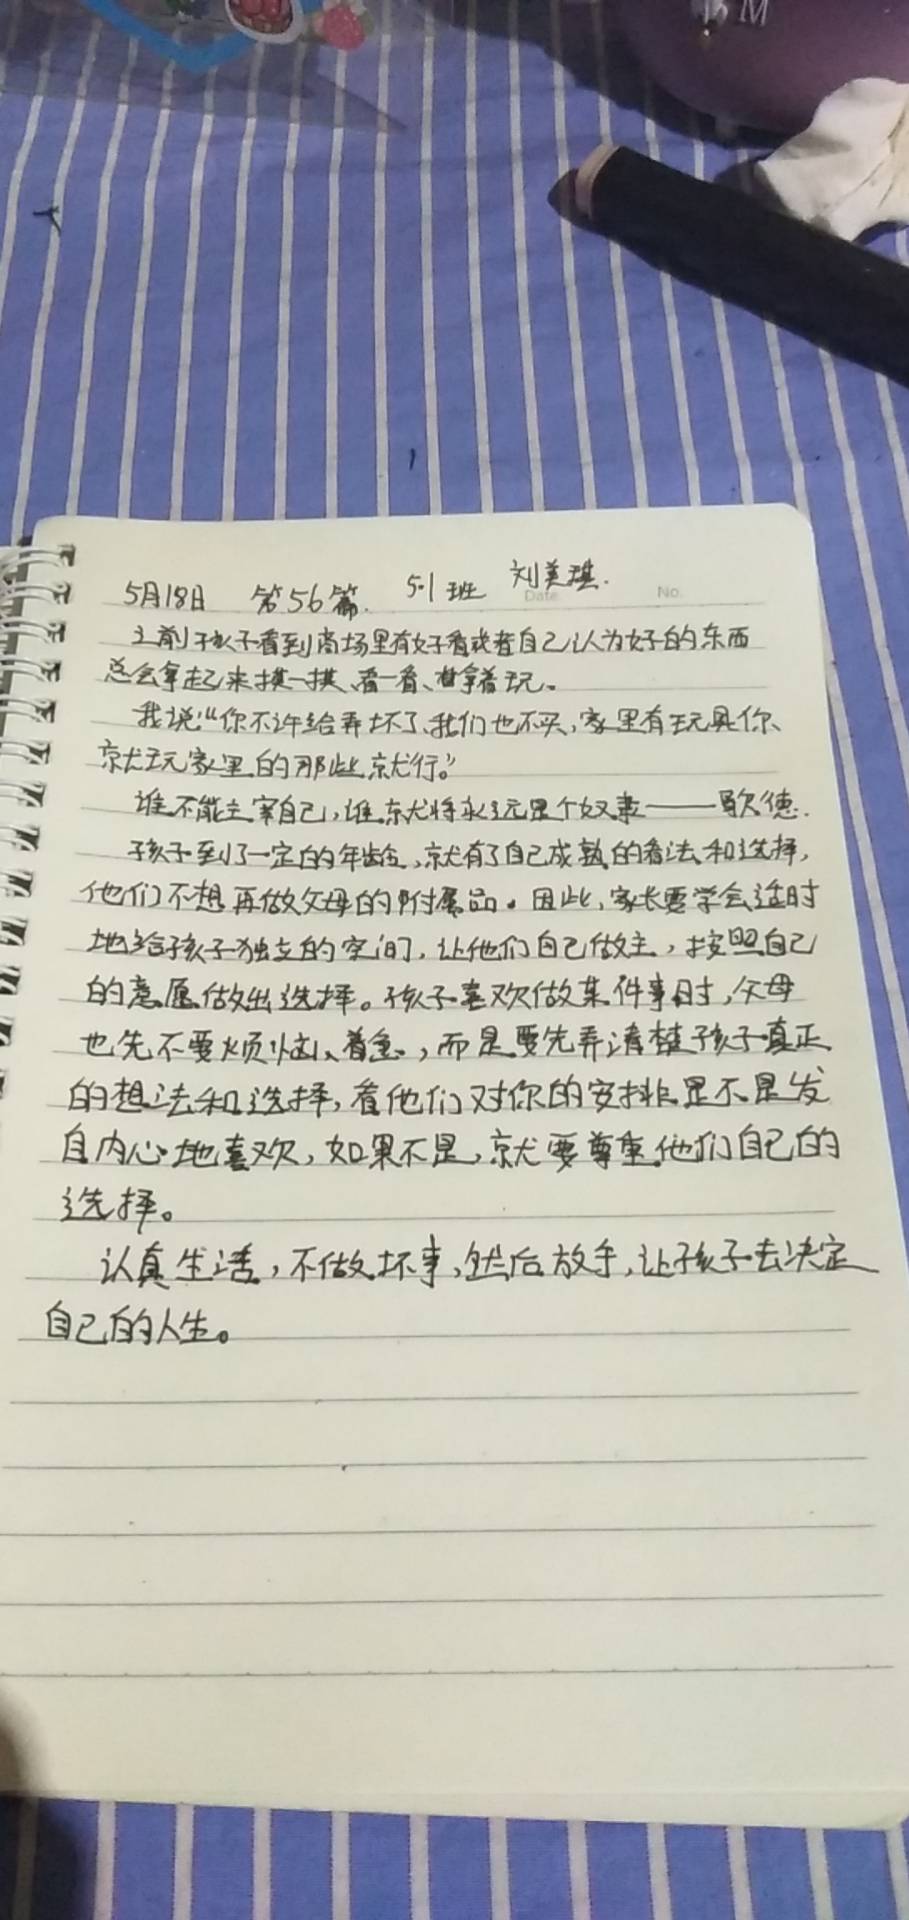 M
5月18日 第56篇. 5.1班 刘美琪.
Date. No.
之前孩子看到商场里有好看或者自己认为好的东西
总会拿起来摸一摸、看一看、拿着玩。
我说:“你不许给弄坏了,我们也不买,家里有玩具你、
就玩家里的那些就行。”
谁不能主宰自己,谁就将永远是个奴隶——歌德.
孩子到了一定的年龄,就有了自己成熟的看法和选择,
他们不想再做父母的附属品。因此,家长要学会适时
地给孩子独立的空间,让他们自己做主,按照自己
的意愿做出选择。孩子喜欢做某件事时,父母
也先不要烦恼、着急,而是要先弄清楚孩子真正
的想法和选择,看他们对你的安排是不是发
自内心地喜欢,如果不是,就要尊重他们自己的
选择。
认真生活,不做坏事,然后放手,让孩子去决定
自己的人生。